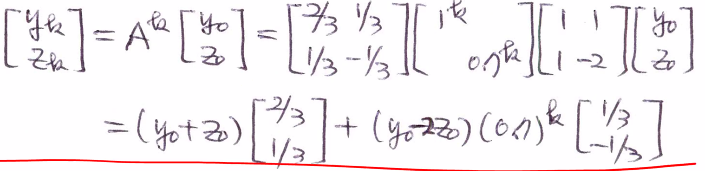 [y_k z_k] = A^k [y_0 z_0] = [2/3 1/3 1/3 -1/3] [1^k 0.7^k] [1 1 1 -2] [y_0 z_0]
= (y_0+z_0) [2/3 1/3] + (y_0-2z_0) (0.7)^k [1/3 -1/3]